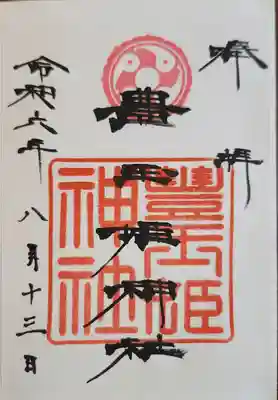 奉拝
豊玉姫神社
豊玉姫
神社
令和六年
八月十三日